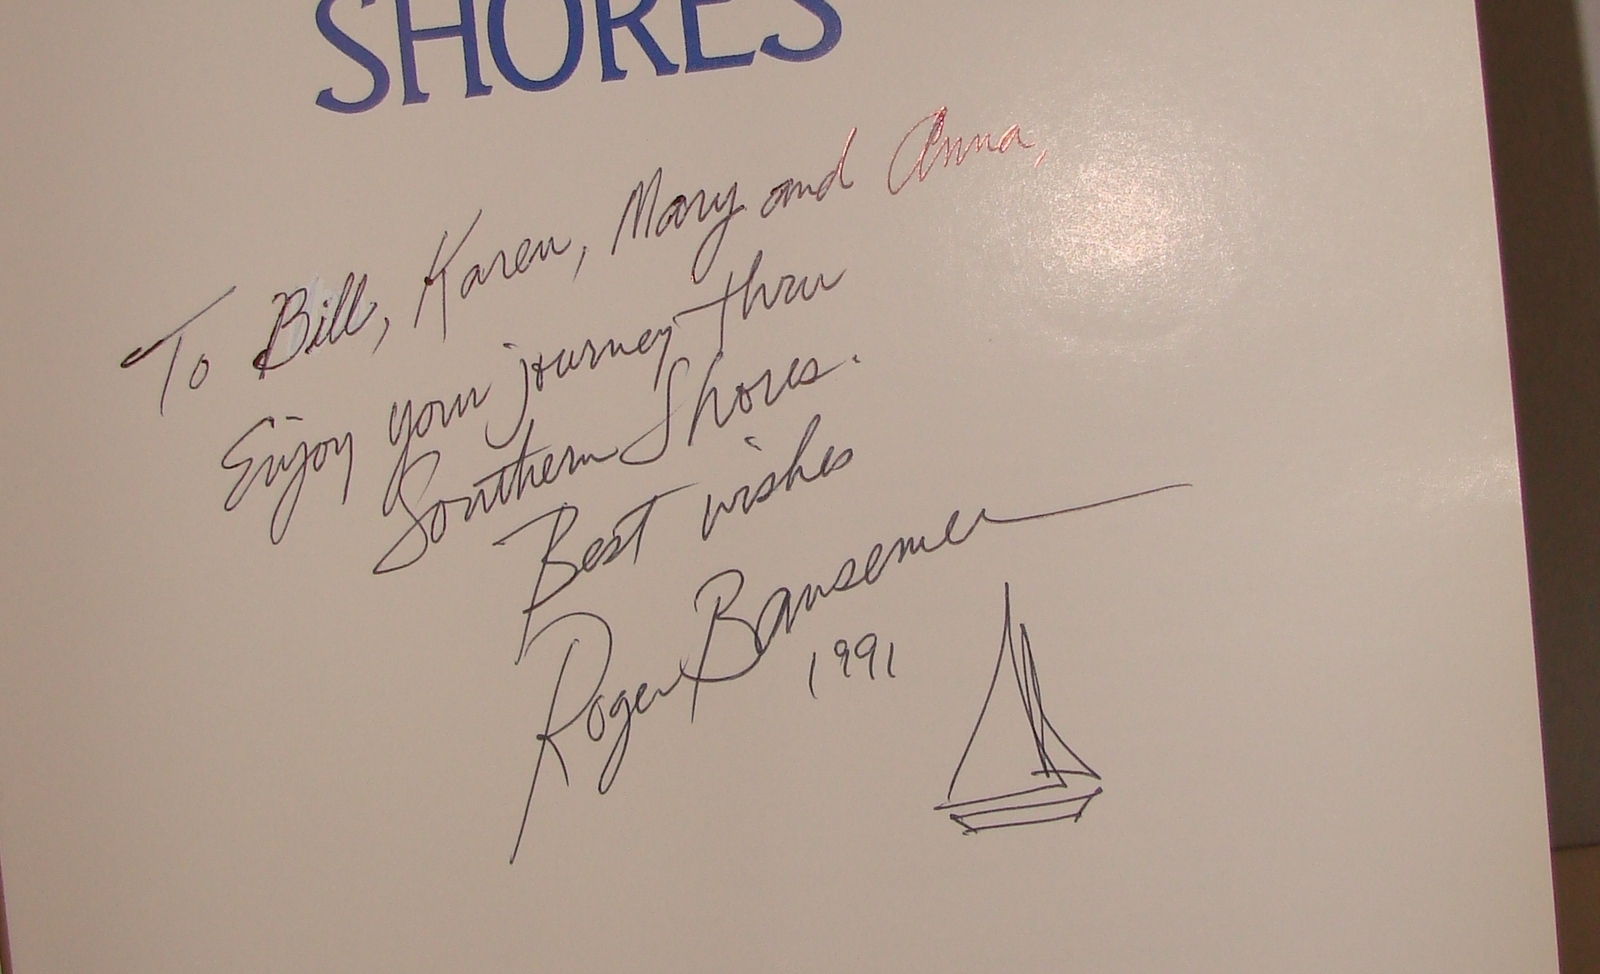 SHORES
To Bill, Karen, Mary and Anna,
Enjoy your journey thru
Southern Shores.
Best wishes
Roger Bansemer
1991